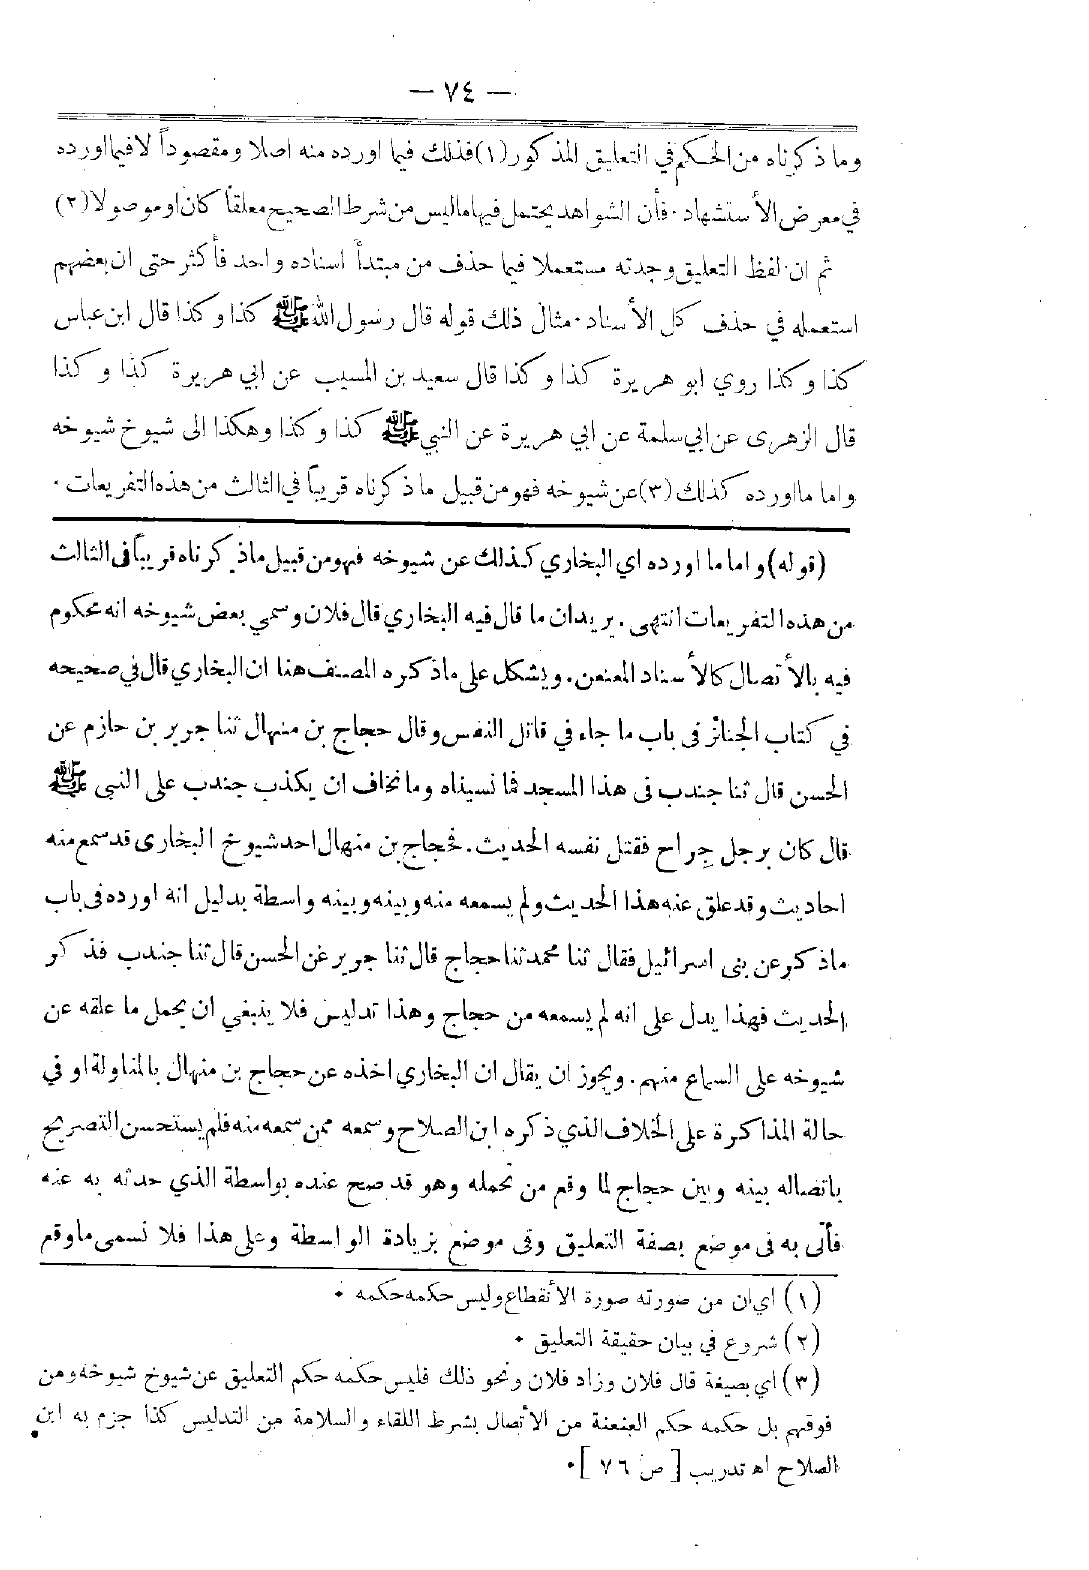 — ٧٤ —
وما ذكرناه من الحكم في التعليق المذكور (١) فذلك فيما اورده منه اصلا ومقصوداً لا فيما اورده
في معرض الأستشهاد . فأن الشواهد يحتمل فيها ما ليس من شرط الصحيح معلقاً كان او موصولا (٢)
ثم ان لفظ التعليق وجدته مستعملا فيما حذف من مبتدأ اسناده واحد فأكثر حتى ان بعضهم
استعمله في حذف كل الأسناد . مثال ذلك قوله قال رسول الله ﷺ كذا وكذا قال ابن عباس
كذا وكذا روي ابو هريرة كذا وكذا قال سعيد بن المسيب عن ابي هريرة كذا وكذا
قال الزهرى عن ابي سلمة عن ابي هريرة عن النبي ﷺ كذا وكذا وهكذا الى شيوخ شيوخه
واما ما اورده كذلك (٣) عن شيوخه فهو من قبيل ما ذكرناه قريباً في الثالث من هذه التفريعات .
(قوله) واما ما اورده اي البخاري كذلك عن شيوخه فهو من قبيل ماذكرناه قريباً فى الثالث
من هذه التفريعات انتهى . يريد ان ما قال فيه البخاري قال فلان وسمي بعض شيوخه انه محكوم
فيه بالأتصال كالأسناد المعنعن . ويشكل على ماذكره المصنف هنا ان البخاري قال في صحيحه
في كتاب الجنائز فى باب ما جاء في قاتل النفس وقال حجاج بن منهال ثنا جرير بن حازم عن
الحسن قال ثنا جندب فى هذا المسجد فما نسيناه وما نخاف ان يكذب جندب على النبى ﷺ
قال كان برجل جِراح فقتل نفسه الحديث . فحجاج بن منهال احد شيوخ البخارى قد سمع منه
احاديث وقد علق عنه هذا الحديث ولم يسمعه منه وبينه وبينه واسطة بدليل انه اورده فى باب
ماذكر عن بنى اسرائيل فقال ثنا محمد ثنا حجاج قال ثنا جرير عن الحسن قال ثنا جندب فذكر
الحديث فهذا يدل على انه لم يسمعه من حجاج وهذا تدليس فلا ينبغي ان يحمل ما علقه عن
شيوخه على السماع منهم . ويجوز ان يقال ان البخاري اخذه عن حجاج بن منهال بالمناولة او في
حالة المذاكرة على الخلاف الذي ذكره ابن الصلاح وسمعه ممن سمعه منه فلم يستحسن التصريح
باتصاله بينه وبين حجاج لما وقع من تحمله وهو قد صح عنده بواسطة الذي حدثه به عنه
فأتى به فى موضع بصفة التعليق وفى موضع بزيادة الواسطة وعلى هذا فلا نسمى ما وقع
(١) اي ان من صورته صورة الأنقطاع وليس حكمه حكمه .
(٢) شروع في بيان حقيقة التعليق .
(٣) اي بصيغة قال فلان وزاد فلان ونحو ذلك فليس حكمه حكم التعليق عن شيوخ شيوخه ومن
فوقهم بل حكمه حكم العنعنة من الأتصال بشرط اللقاء والسلامة من التدليس كذا جزم به ابن
الصلاح اهـ تدريب [ ص ٧٦ ] .